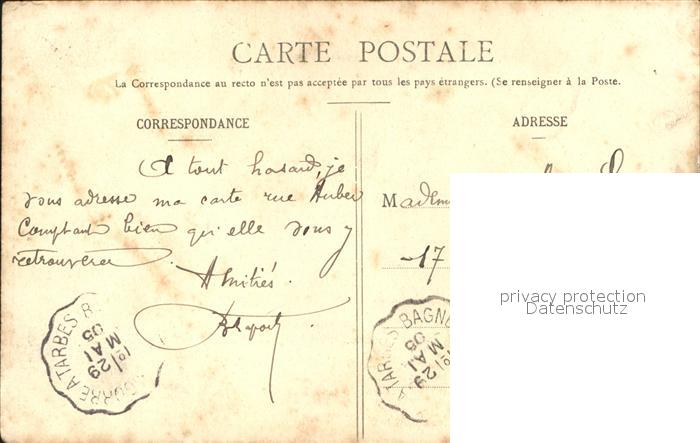 CARTE POSTALE
La Correspondance au recto n'est pas acceptée par tous les pays étrangers. (Se renseigner à la Poste.
CORRESPONDANCE
A tout hasard, je
vous adresse ma carte rue Auber
Comptant bien qu'elle vous y
retrouvera.
Amitiés.
BAGN
A TARBES
1º/29
MAI
05
ADRESSE
Madem
-17
TARBES BAGN
1º/29
MAI
05
privacy protection
Datenschutz